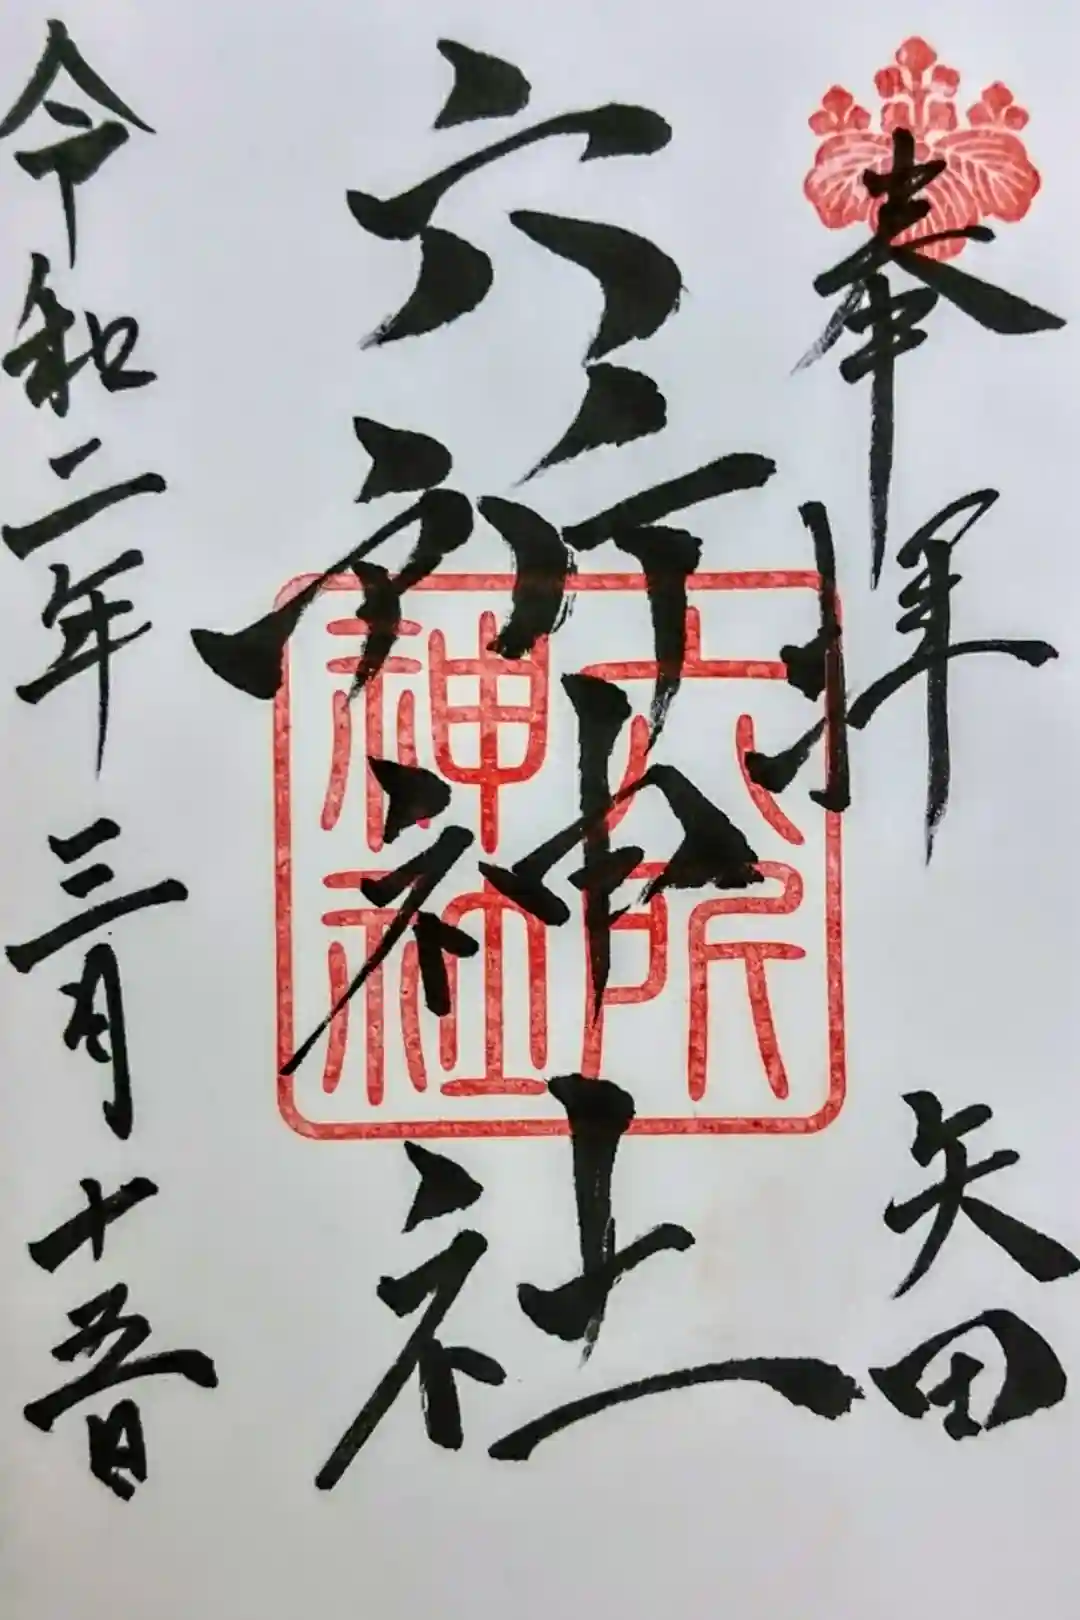 奉拝
矢田
六所神社
六所
神社
令和二年三月十五日